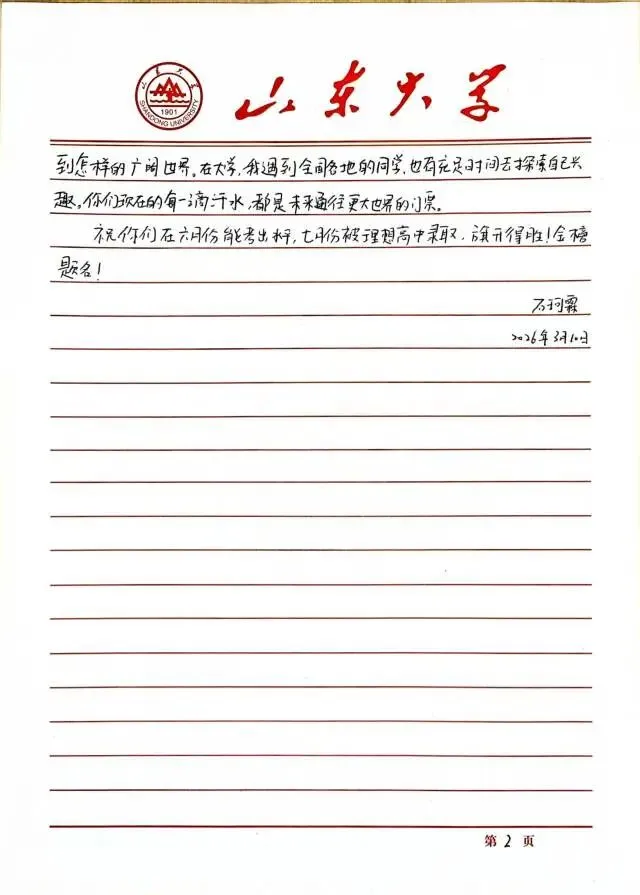 山东大学
SHANDONG UNIVERSITY
1901
山东大学
到怎样的广阔世界。在大学,我遇到全国各地的同学,也有充足时间去探索自己兴
趣。你们现在的每一滴汗水,都是未来通往更大世界的门票。
祝你们在六月份能考出水平,七月份被理想高中录取。旗开得胜!金榜
题名!
石珂霖
2026年3月10日
第2页